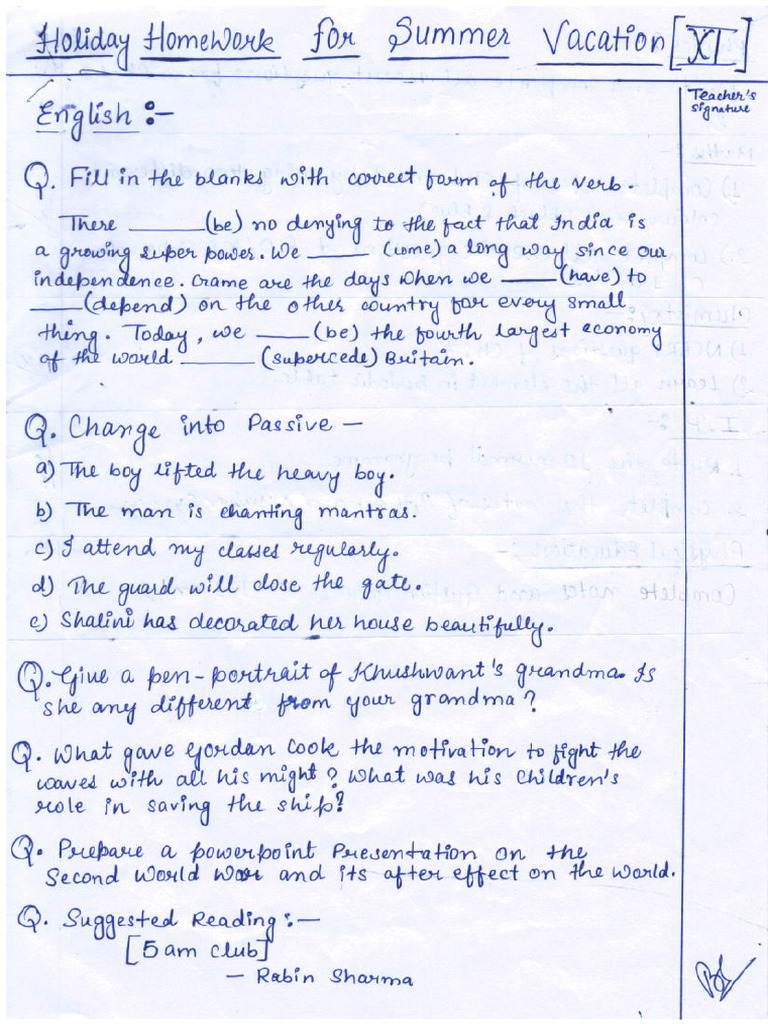 Holiday Homework for Summer Vacation [XI]
Teacher's
signature
English :-
Q. Fill in the blanks with correct form of the verb.
There ______ (be) no denying to the fact that India is
a growing super power. We ______ (come) a long way since our
independence. Grame are the days when we ______ (have) to
______ (depend) on the other country for every small
thing. Today, we ______ (be) the fourth largest economy
of the world ______ (supercede) Britain.
Q. Change into Passive -
a) The boy lifted the heavy boy.
b) The man is chanting mantras.
c) I attend my classes regularly.
d) The guard will close the gate.
e) Shalini has decorated her house beautifully.
Q. Give a pen-portrait of Khushwant's grandma. Is
she any different from your grandma?
Q. What gave Gordan Cook the motivation to fight the
waves with all his might? What was his Children's
role in saving the ship?
Q. Prepare a powerpoint Presentation on the
Second World War and its after effect on the world.
Q. Suggested Reading :-
[5 am club]
- Rabin Sharma